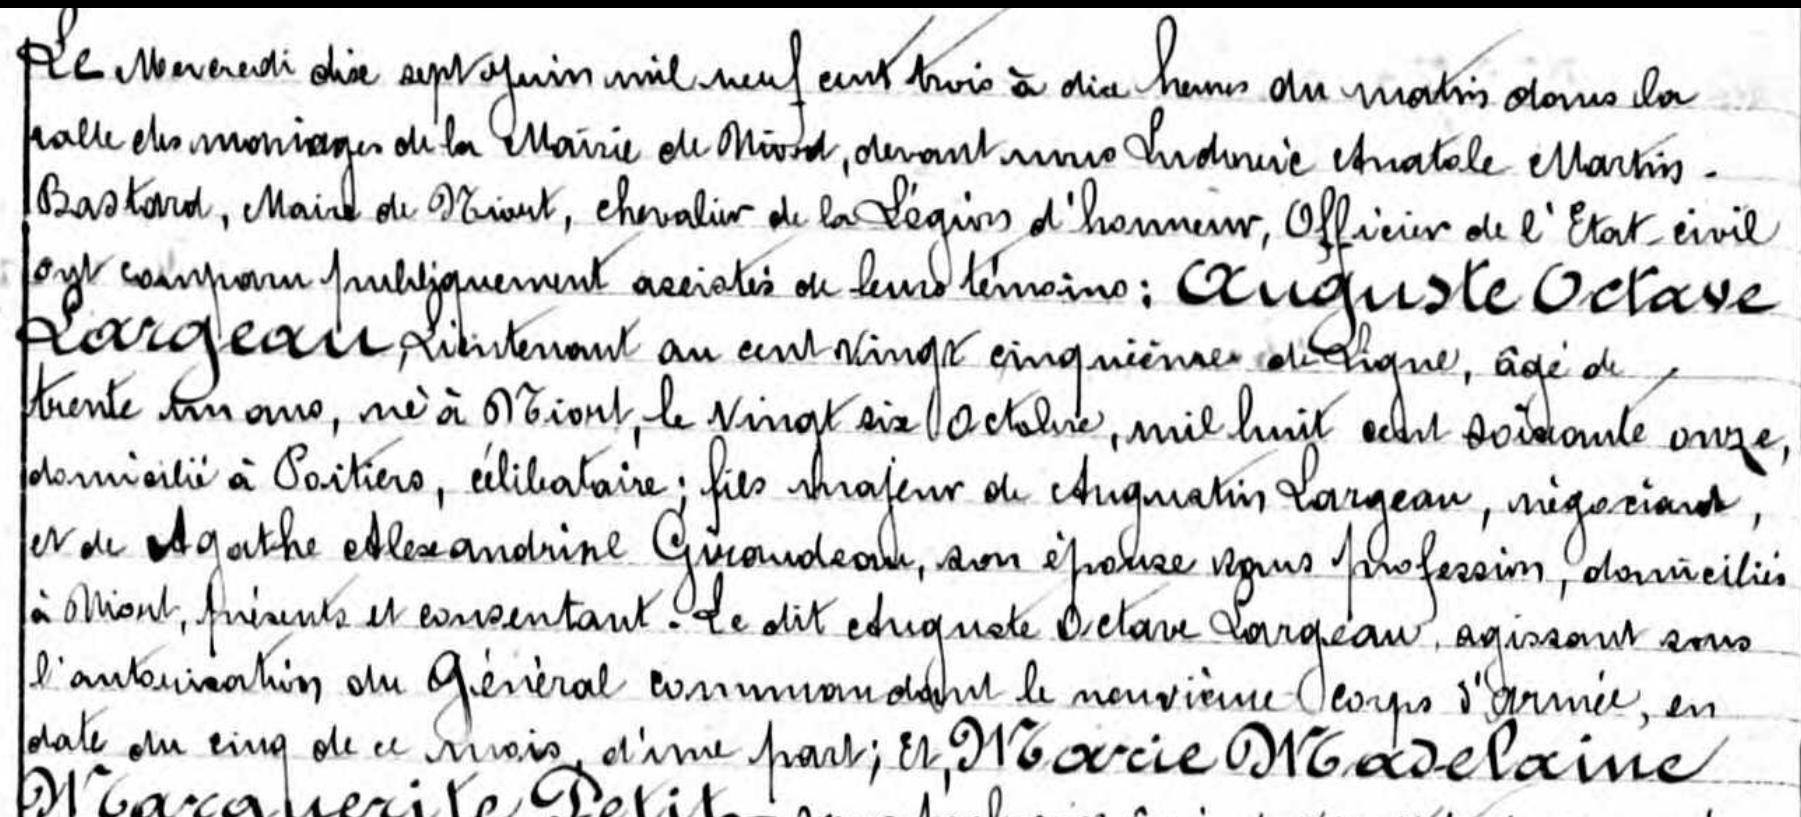 Le Mercredi dix sept Juin mil neuf cent trois à dix heures du matin dans la
salle des mariages de la Mairie de Niort, devant nous Ludovic Anatole Martin-
Bastard, Maire de Niort, chevalier de la Légion d'honneur, Officier de l'Etat-civil
ont comparu publiquement assistés de leurs témoins : Auguste Octave
Largeau, Lieutenant au cent vingt cinquième de Ligne, âgé de
trente un ans, né à Niort, le vingt six Octobre, mil huit cent soixante onze,
domicilié à Poitiers, célibataire ; fils majeur de Augustin Largeau, négociant,
et de Agathe Alexandrine Giraudeau, son épouse sans profession, domiciliés
à Niort, présents et consentant. Le dit Auguste Octave Largeau, agissant sous
l'autorisation du Général commandant le neuvième corps d'armée, en
date du cinq de ce mois, d'une part ; Et, Marie Madelaine
Marguerite Petit